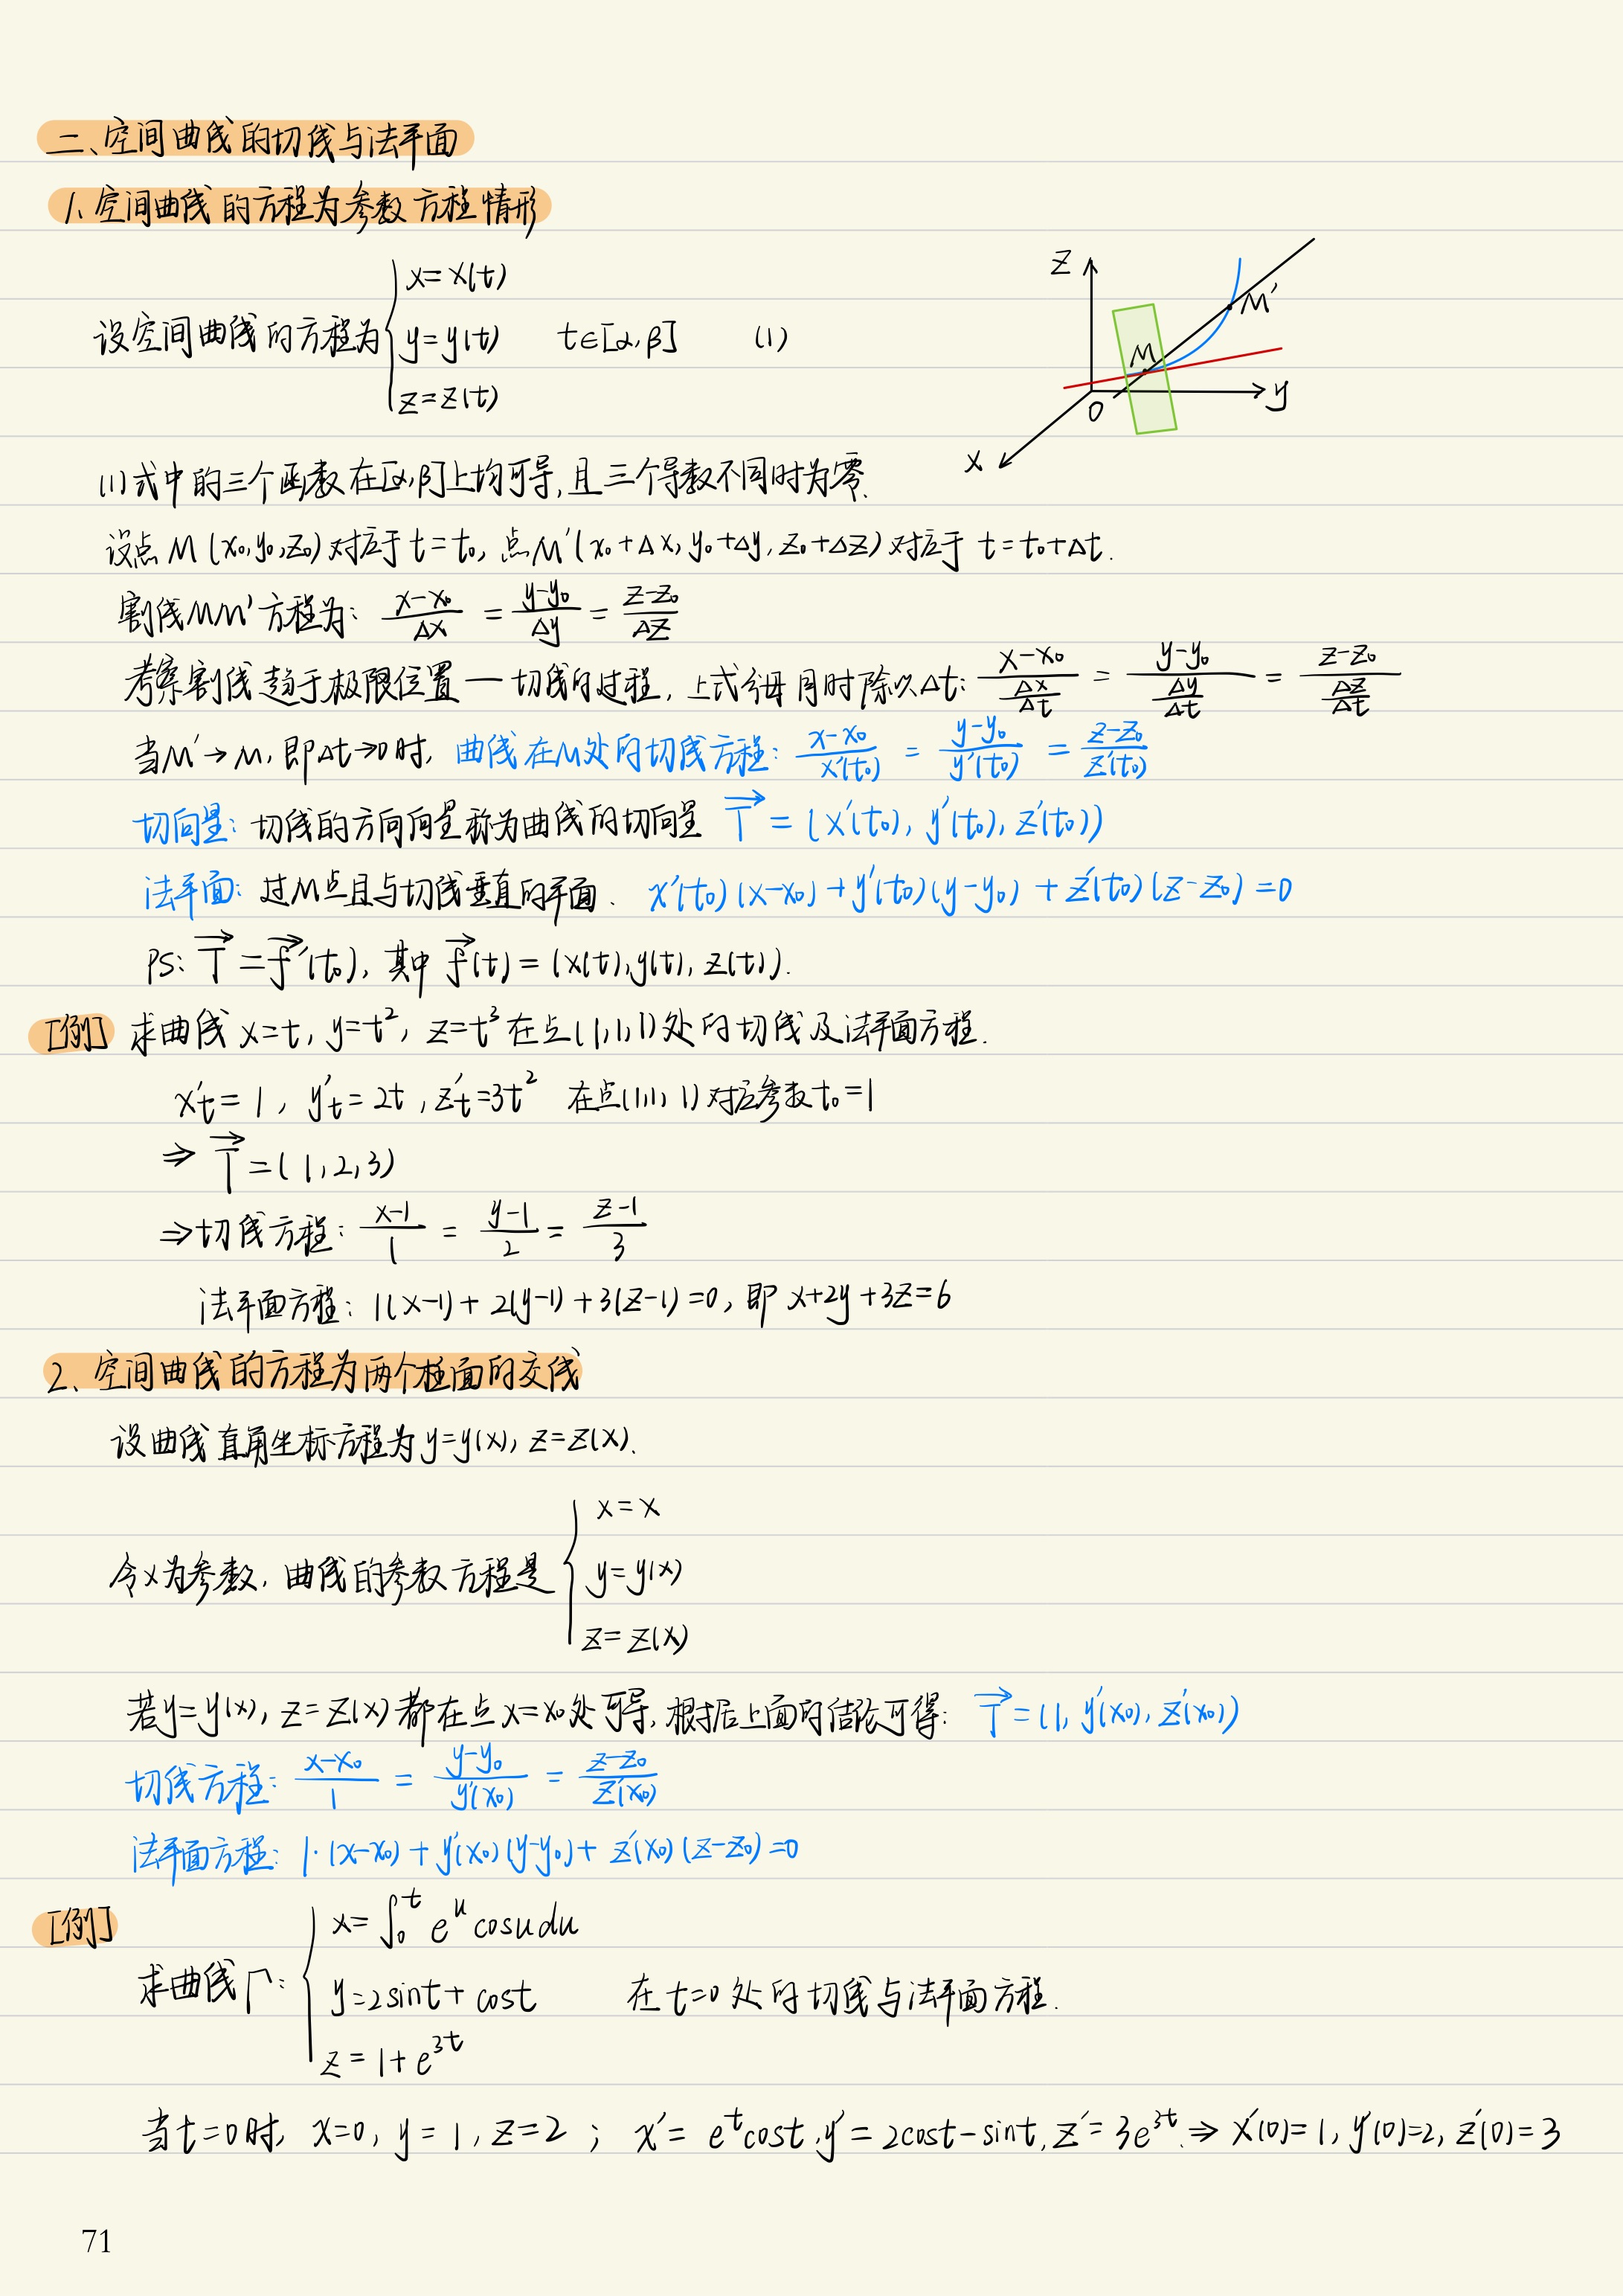 二、空间曲线的切线与法平面
1、空间曲线的方程为参数方程情形
设空间曲线的方程为 { x=x(t)
y=y(t) t∈[α,β] (1)
z=z(t)
z
M′
M
O
y
x
(1)式中的三个函数在[α,β]上均可导,且三个导数不同时为零.
设点M(x₀,y₀,z₀)对应于t=t₀, 点M′(x₀+Δx, y₀+Δy, z₀+Δz)对应于 t=t₀+Δt.
割线MM′方程为: (x-x₀)/Δx = (y-y₀)/Δy = (z-z₀)/Δz
考察割线趋于极限位置—切线的过程, 上式分母同时除以Δt: (x-x₀)/(Δx/Δt) = (y-y₀)/(Δy/Δt) = (z-z₀)/(Δz/Δt)
当M′→M, 即Δt→0时, 曲线在M处的切线方程: (x-x₀)/x′(t₀) = (y-y₀)/y′(t₀) = (z-z₀)/z′(t₀)
切向量: 切线的方向向量称为曲线的切向量 T⃗ = (x′(t₀), y′(t₀), z′(t₀))
法平面: 过M点且与切线垂直的平面. x′(t₀)(x-x₀)+y′(t₀)(y-y₀)+z′(t₀)(z-z₀)=0
PS: T⃗=f⃗′(t₀), 其中 f⃗(t)=(x(t),y(t),z(t)).
[例] 求曲线 x=t, y=t², z=t³ 在点(1,1,1)处的切线及法平面方程.
x′t=1, y′t=2t, z′t=3t² 在点(1,1,1)对应参数t₀=1
⇒ T⃗=(1,2,3)
⇒切线方程: (x-1)/1 = (y-1)/2 = (z-1)/3
法平面方程: 1(x-1)+2(y-1)+3(z-1)=0, 即 x+2y+3z=6
2、空间曲线的方程为两个柱面的交线
设曲线直角坐标方程为y=y(x), z=z(x).
{ x=x
令x为参数, 曲线的参数方程是 y=y(x)
z=z(x)
若y=y(x), z=z(x)都在点x=x₀处可导, 根据上面的结论可得: T⃗=(1, y′(x₀), z′(x₀))
切线方程: (x-x₀)/1 = (y-y₀)/y′(x₀) = (z-z₀)/z′(x₀)
法平面方程: 1·(x-x₀)+y′(x₀)(y-y₀)+z′(x₀)(z-z₀)=0
[例] { x=∫₀ᵗ eᵘcosudu
求曲线Γ: y=2sint+cost 在t=0处的切线与法平面方程.
z=1+e³ᵗ
当t=0时, x=0, y=1, z=2; x′=eᵗcost, y′=2cost-sint, z′=3e³ᵗ. ⇒ x′(0)=1, y′(0)=2, z′(0)=3
71